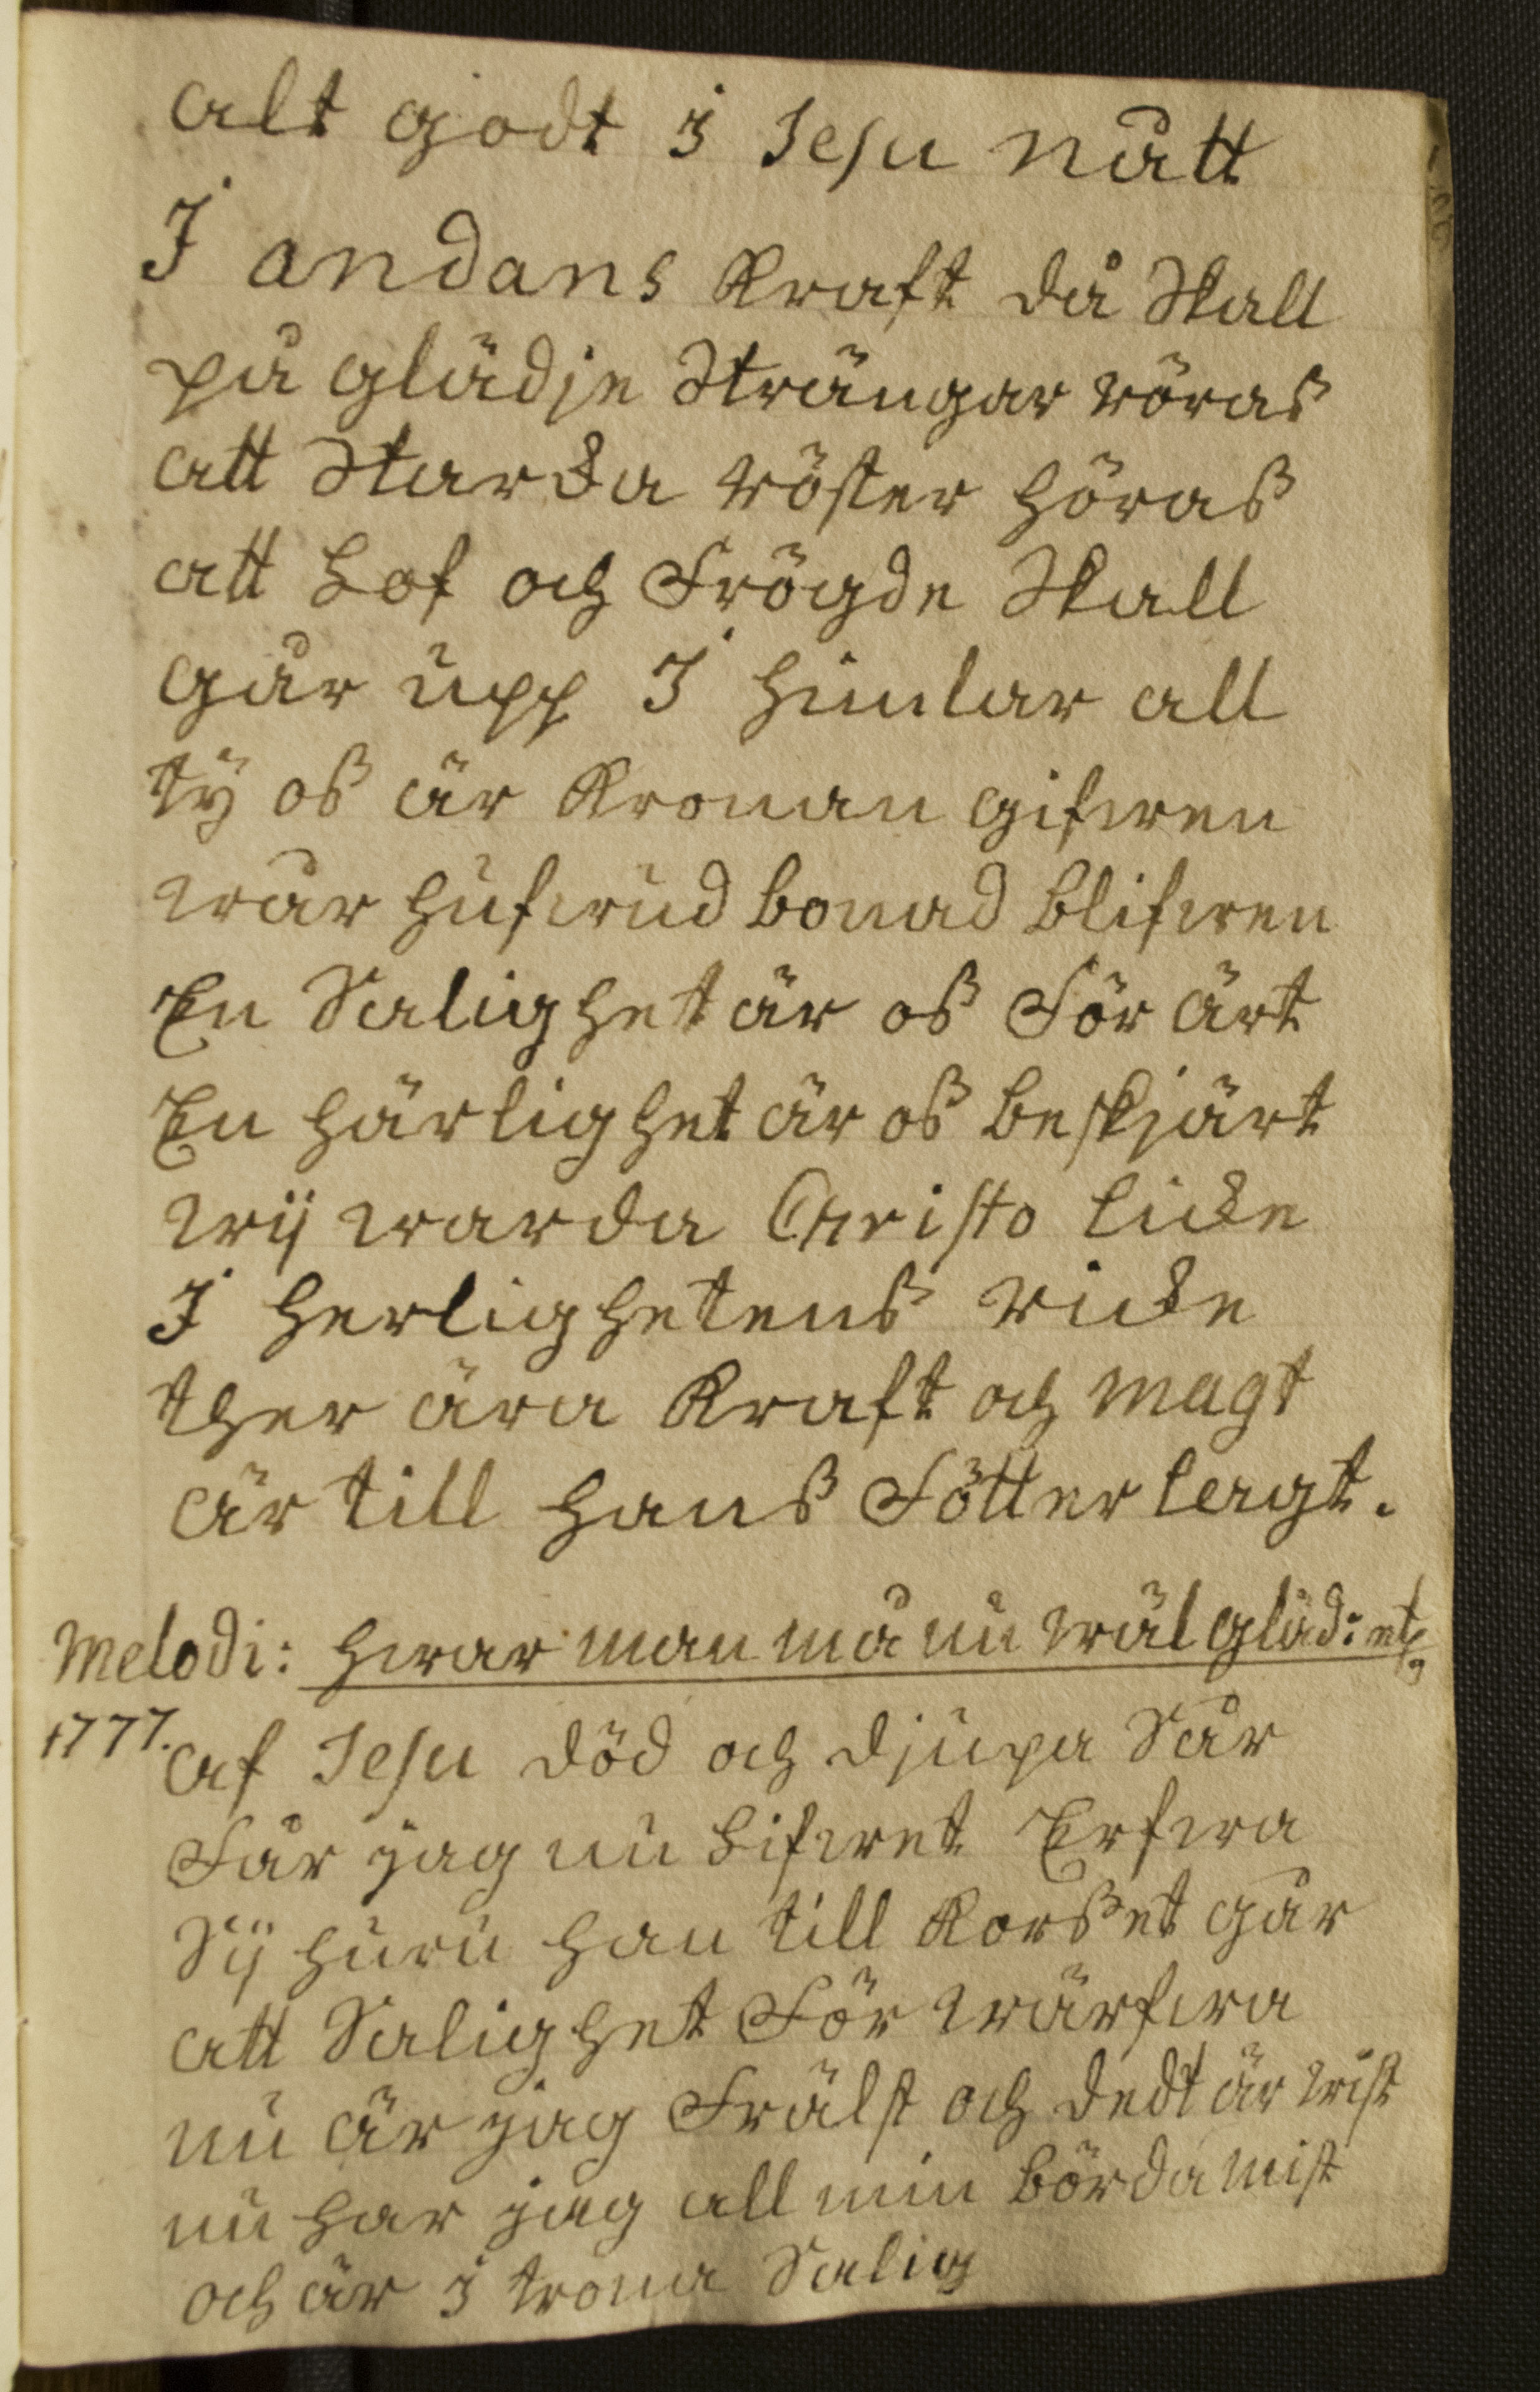 alt godt i Jesu nått
I andans Kraft då Skall
på glädje Strängar röras
att Starcka röster höras
att Lof och Frögde Skall
går upp I himlar all
ty oß är Kronan gifwen
wår hufwudbonad blifwen
En Salighet är oß För ärt
En härlighet är oß beskjärt
wij warda Christo licke
I herlighetens ricke
ther ära Kraft och magt
är till hans Fötter lagt.
Melodi: hwar man må nu wäl gläd: etc
1777. af Jesu död och djupa Sår
Får jag nu Lifwet Erfwa
Sij huru han till Korßet går
att Salighet För wärfwa
nu är jag Frälst och dedt är wist
nu har jag all min börda mist
och är i trona Salig